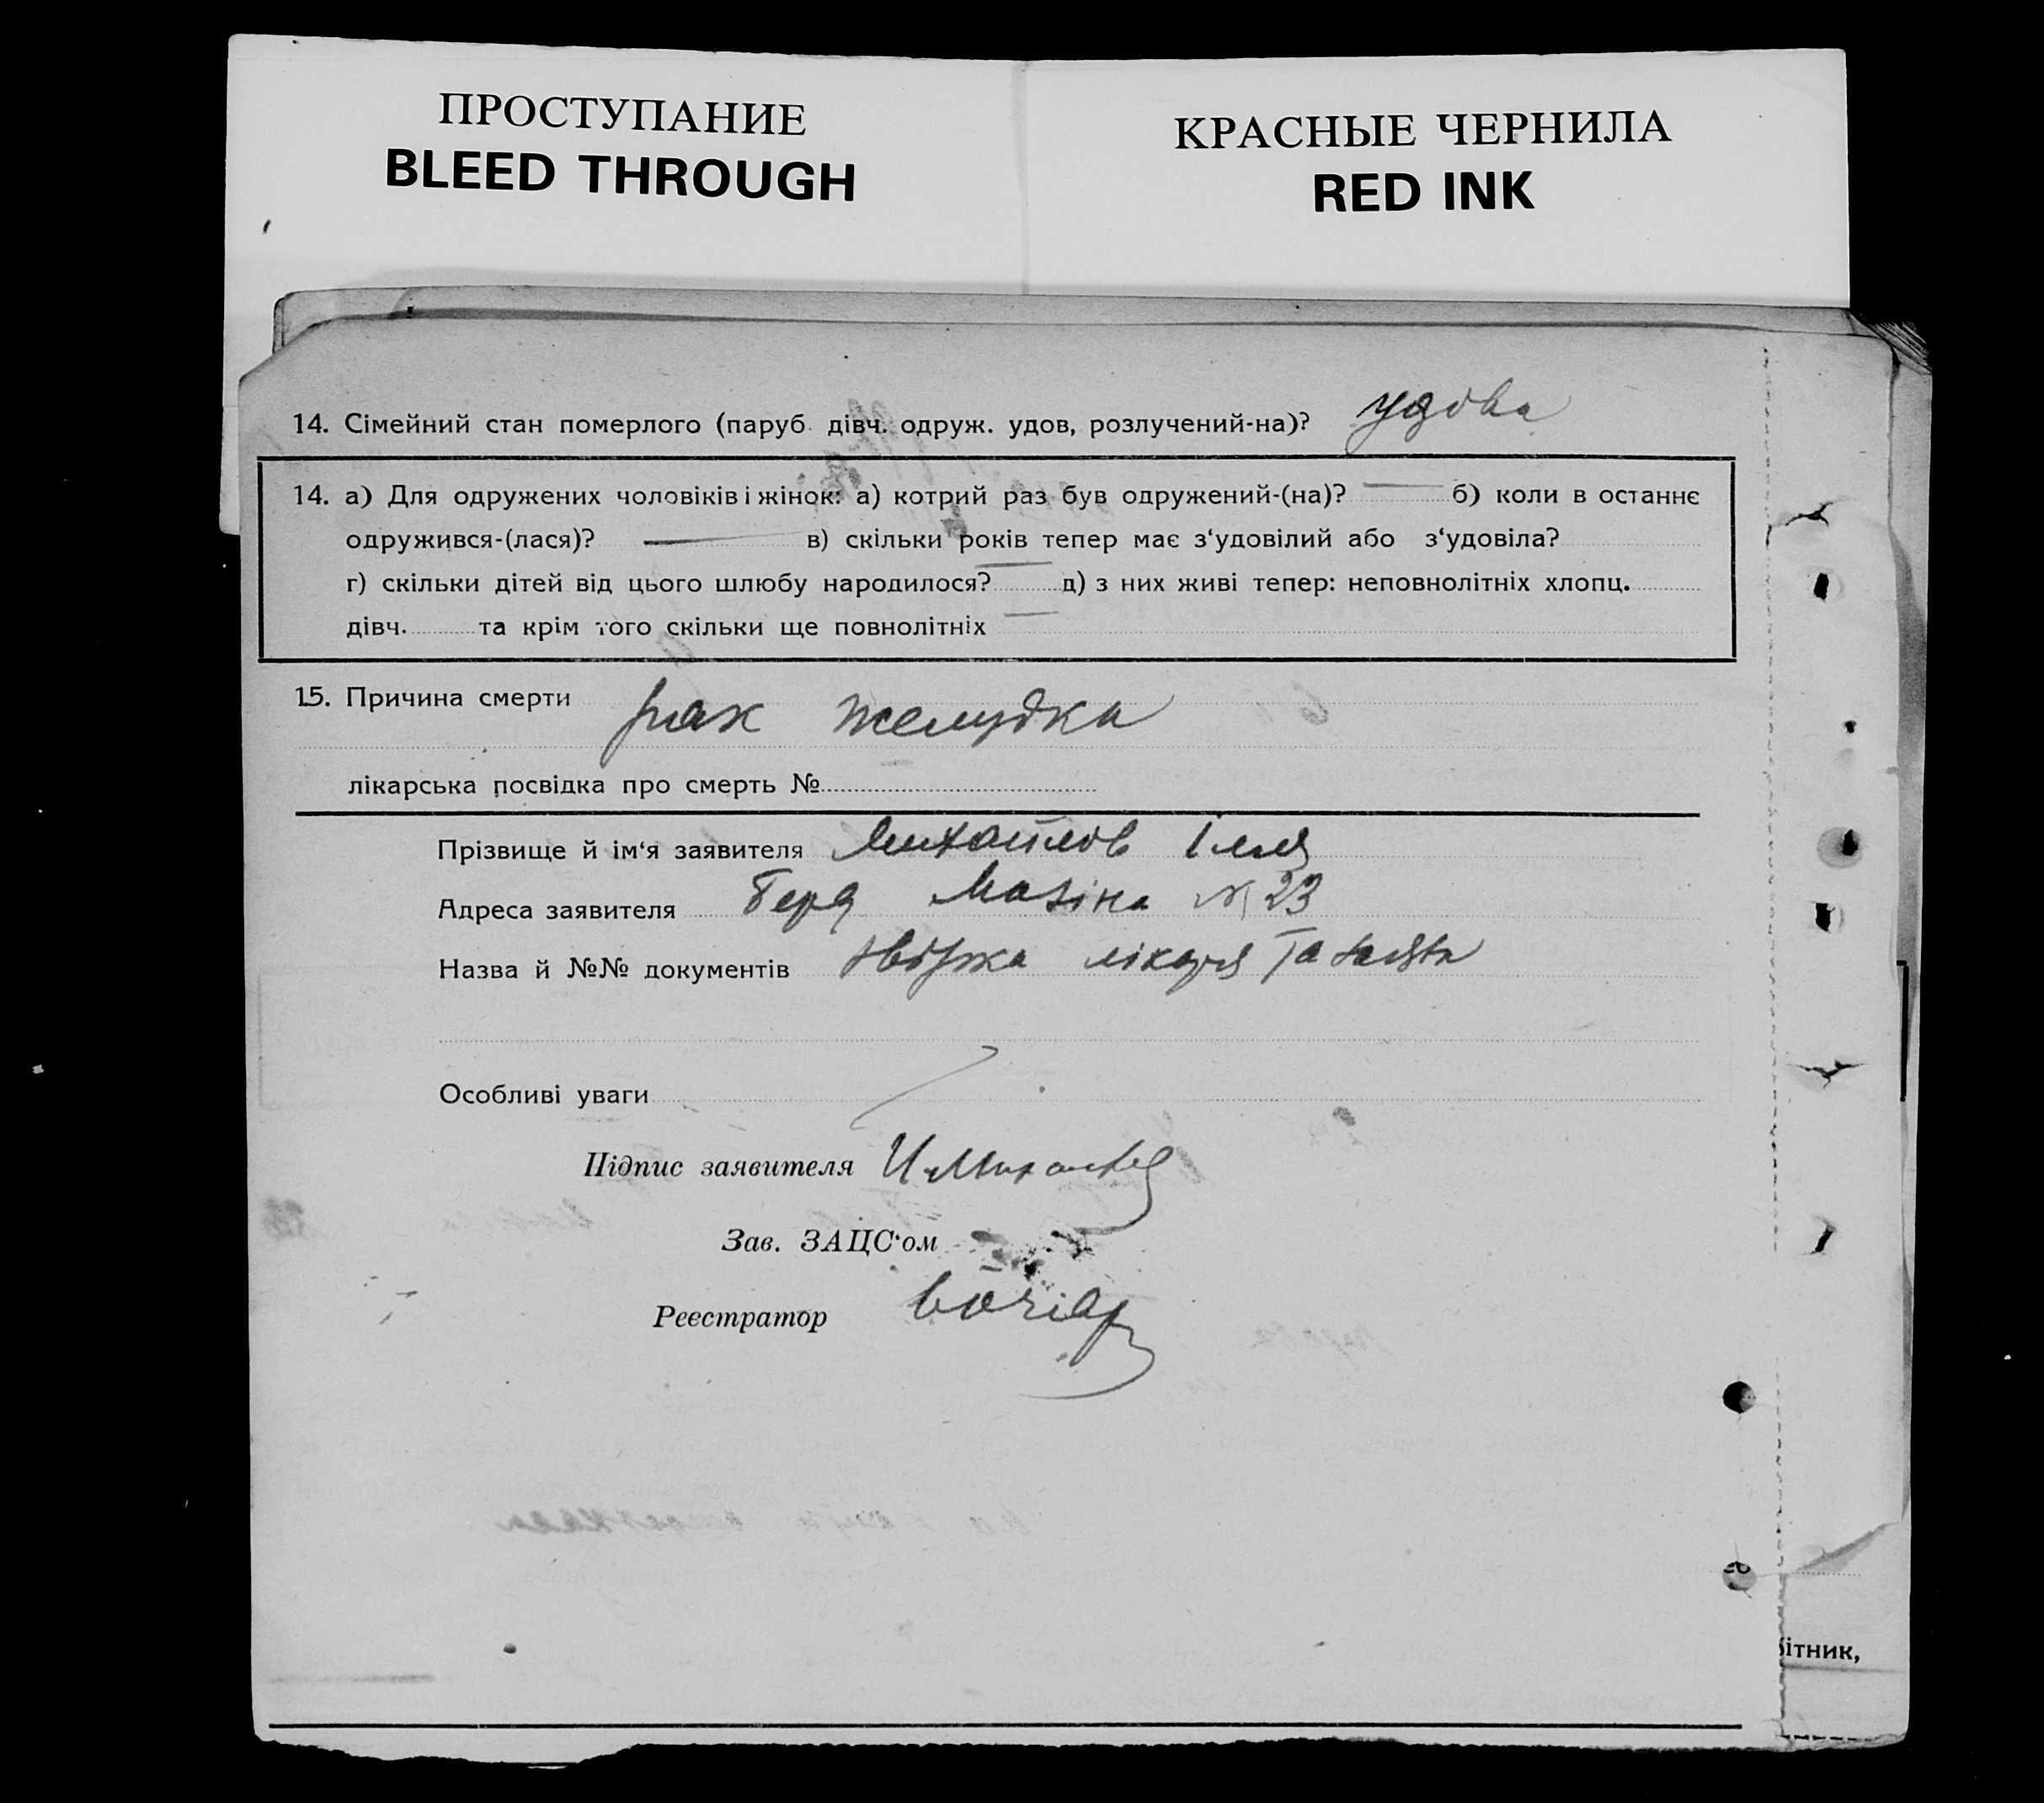 ПРОСТУПАНИЕ
BLEED THROUGH
КРАСНЫЕ ЧЕРНИЛА
RED INK
14. Сімейний стан померлого (паруб. дівч. одруж. удов, розлучений-на)? удова
14. а) Для одружених чоловіків і жінок: а) котрий раз був одружений-(на)? б) коли в останнє
одружився-(лася)? в) скільки років тепер має з‘удовілий або з‘удовіла?
г) скільки дітей від цього шлюбу народилося? д) з них живі тепер: неповнолітніх хлопц.
дівч. та крім того скільки ще повнолітніх
15. Причина смерти рак желудка
лікарська посвідка про смерть №
Прізвище й ім‘я заявителя Михайлов Ілля
Адреса заявителя Берд Мазіна № 23
Назва й №№ документів лікаря
Особливі уваги
Підпис заявителя
Зав. ЗАЦС‘ом
Реєстратор
ітник,